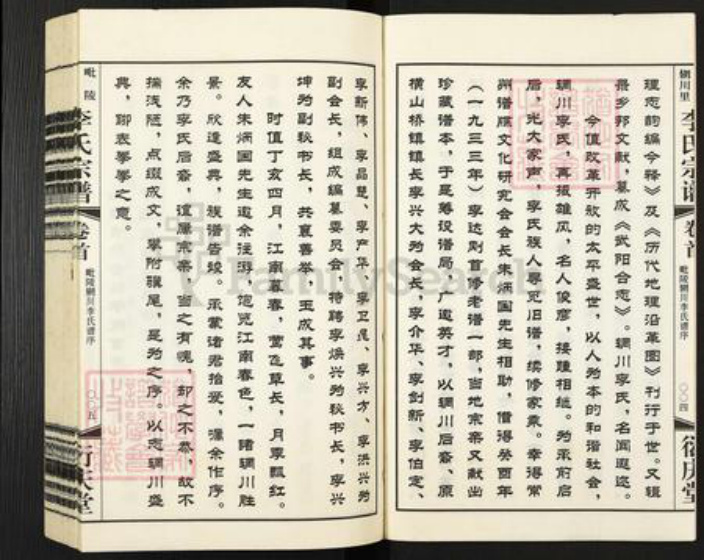 辋川里 李氏宗谱 卷首 毗陵辋川李氏谱序 〇〇四 衍庆堂
理志韵编今释》及《历代地理沿革图》刊行于世。又辑
乡邦文献，纂成《武阳合志》。辋川李氏，名闻遐迩。
今值改革开放的太平盛世，以人为本的和谐社会，
辋川李氏，再振雄风，名人俊彦，接踵相继。为承前启
后，光大家声，李氏族人寻觅旧谱，续修家乘。幸得常
州谱牒文化研究会会长朱炳国先生相助，借得癸酉年
（一九三三年）李达刚首修老谱一部，当地宗亲又献出
珍藏谱本，于是筹设谱局，广邀英才，以辋川后裔、原
横山桥镇镇长李兴大为会长，李介华、李剑新、李伯定、
李新伟、李昌楚、李产华、李卫昆、李兴方、李洪兴为
副会长，组成编纂委员会，特聘李焕兴为秘书长，李兴
坤为副秘书长，共襄善举，玉成其事。
时值丁亥四月，江南暮春，莺飞草长，月季飘红。
友人朱炳国先生邀余往游，饱览江南春色，一睹辋川胜
景。欣逢盛典，族谱告竣。承蒙诸君抬爱，嘱余作序。
余乃李氏后裔，谊属宗亲，当之有愧，却之不恭，故不
揣浅陋，点缀成文，聊附骥尾，是为之序。以志辋川盛
典，聊表拳拳之意。
毗陵 李氏宗谱 卷首 毗陵辋川李氏谱序 〇〇五 衍庆堂
FamilySearch